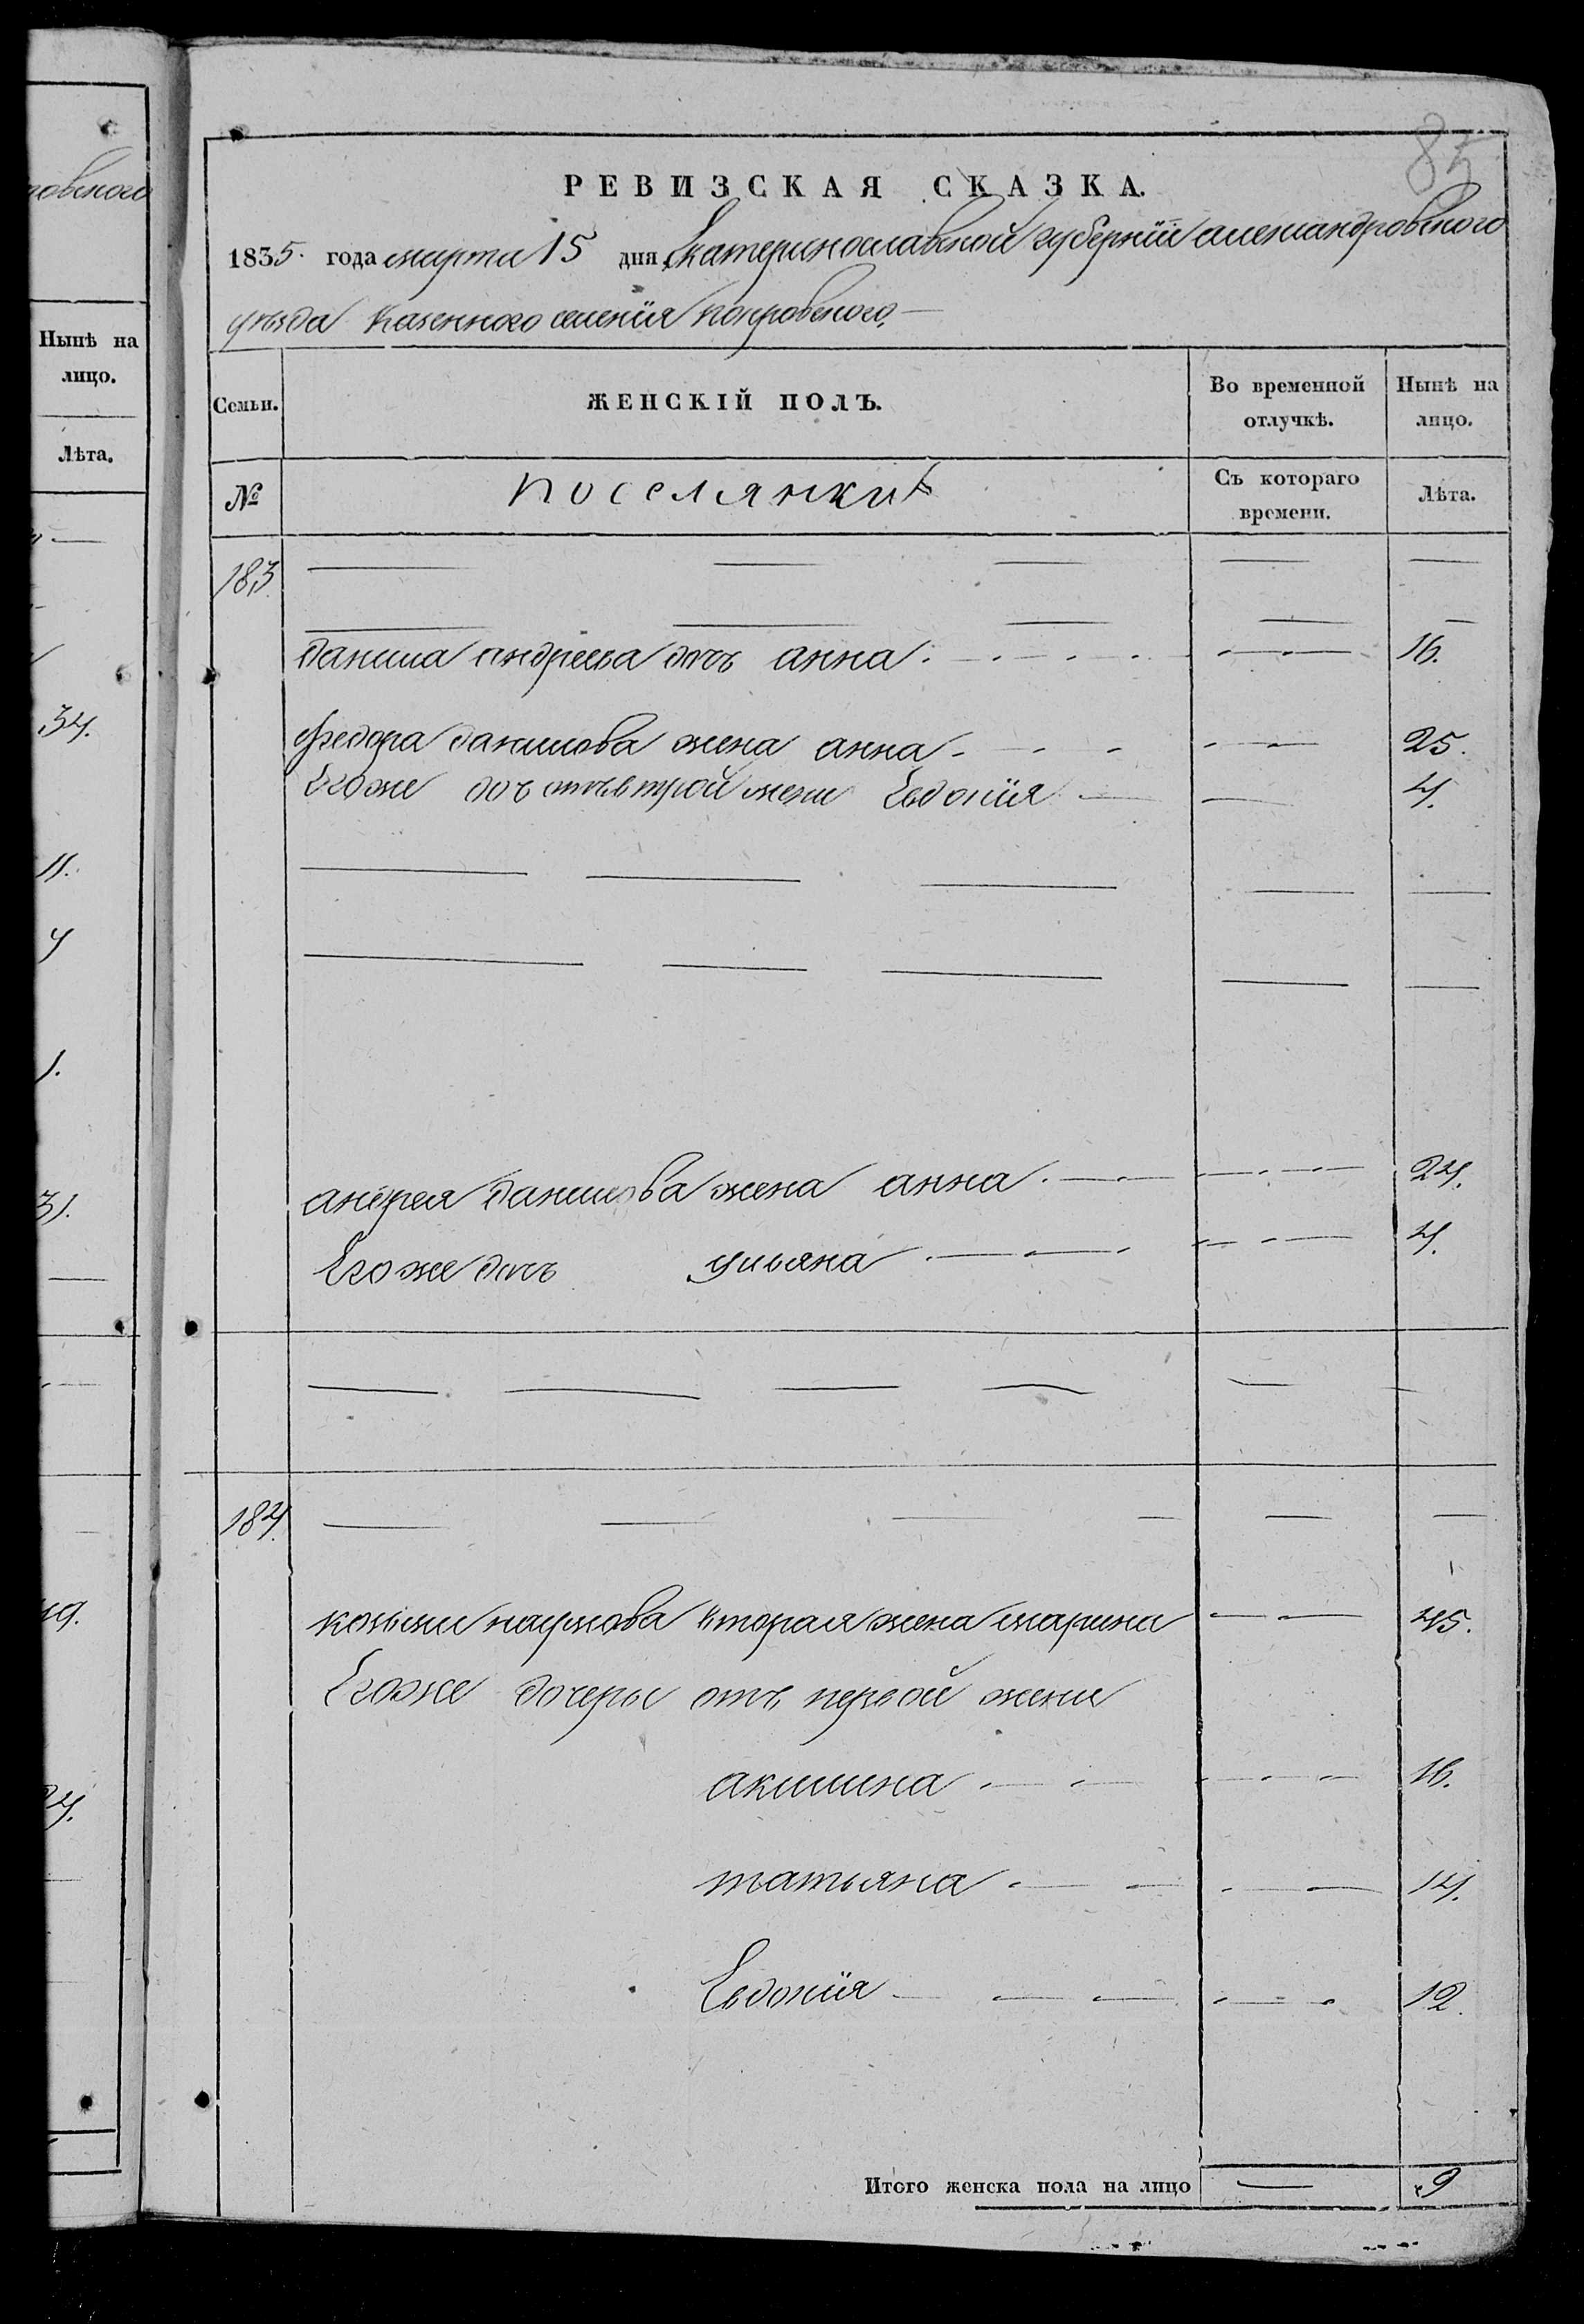 85
РЕВИЗСКАЯ СКАЗКА.
1835 года марта 15 дня Екатеринославской губерніи александровского
уезда казенного селенія покровского,
Семьи.
ЖЕНСКІЙ ПОЛЪ.
Во временной отлучкѣ.
Нынѣ на лицо.
№
поселянки
Съ котораго времени.
Лѣта.
183
данила андреева дочь анна 16.
Федора данилова жена анна 25.
Егоже дочь отъ втрой жени Евдокия 4.
андрея данилова жена анна 24.
Егоже дочь ульяна 4.
184
козьми наумова вторая жена марина 45.
Егоже дочеры отъ первой жени
акилина 16.
татьяна 14.
Евдокия 12.
Итого женска пола на лицо 9
овского
Нынѣ на
лицо.
Лѣта.
34.
11.
4
1.
31.